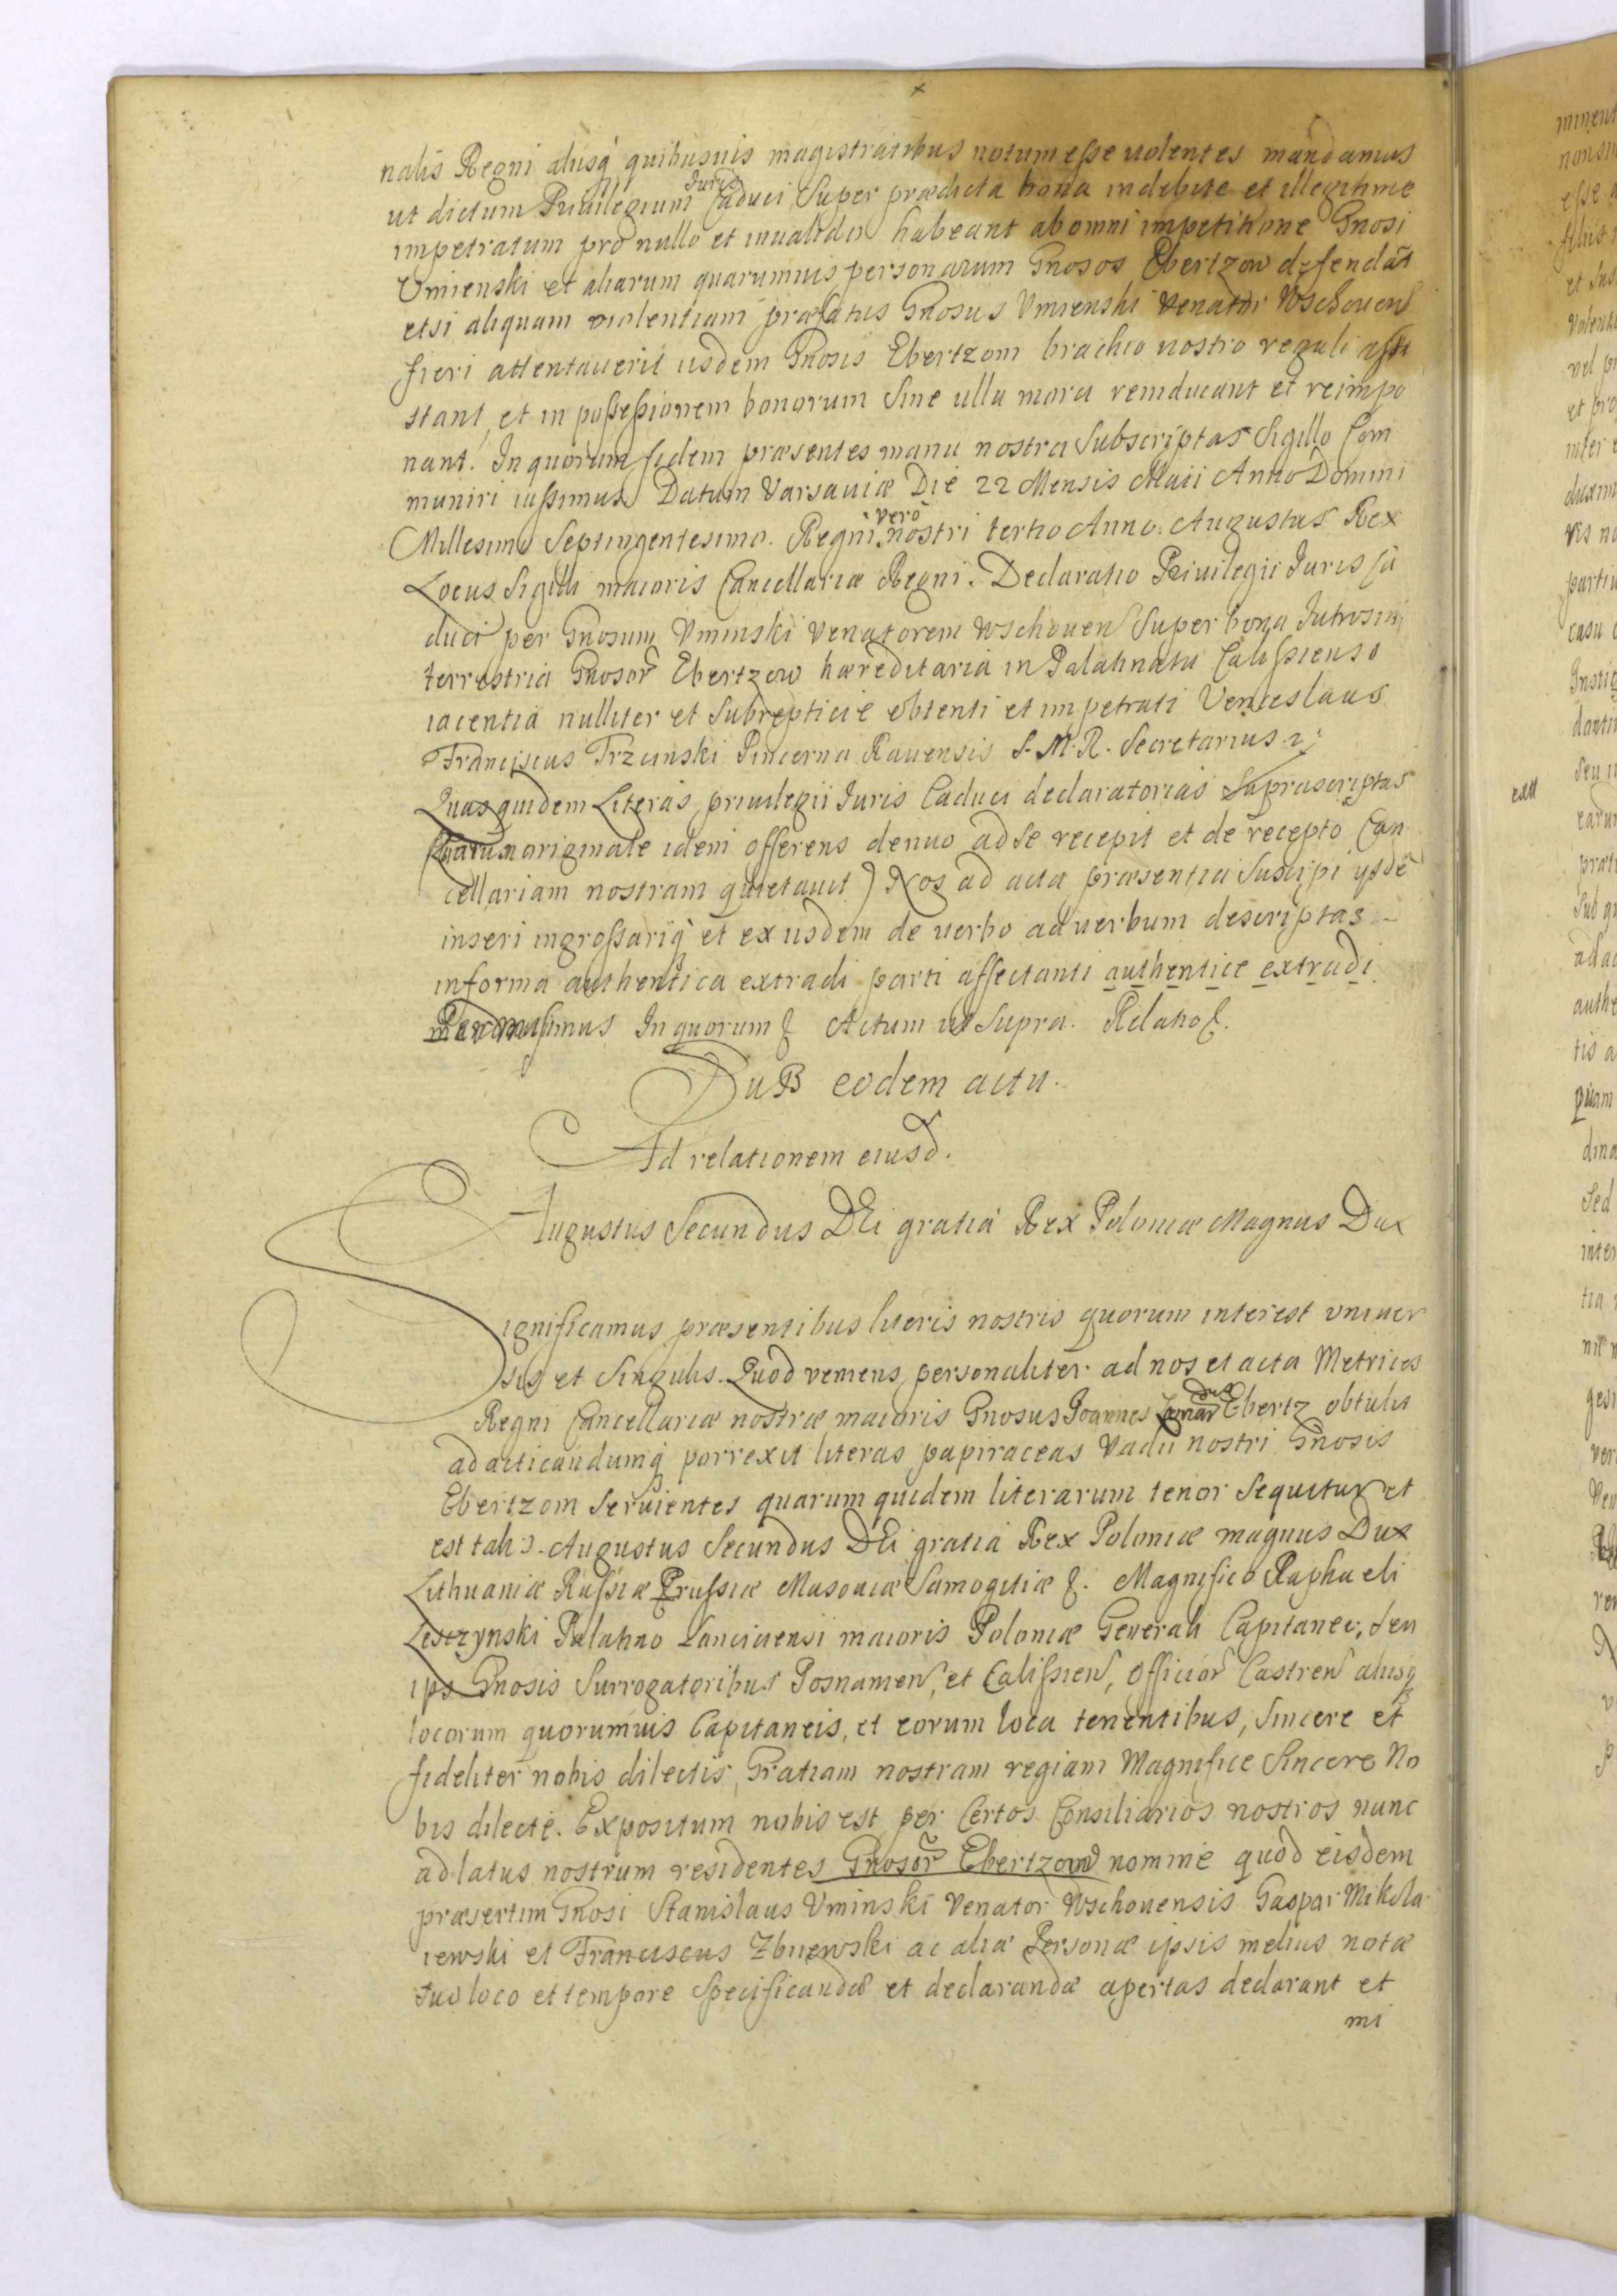 nalis Regni alijsq́ quibusuis magistratibus notum esse uolentes mandamus
ut dictum Priuilegium Juris Caduci Super prædicta bona indebite et illegitime
impetratum pro nullo et inualido habeant ab omni impetitione Gnosi
Vmienski et aliarum quarumuis personarum Gnosos Ebertzow defendāt
etsi aliquam violentiam præfatus Gnosus Vmienski Venator Wschouens
fieri attentauerit iisdem Gnosis Ebertzom brachio nostro regali assi
stant, et in possessionem bonorum Sine ulla mora reinducant et reimpo
nant. In quorum fidem præsentes manu nostra Subscriptas Sigillo Com
muniri iussimus Datum Varsauiæ Die 22 Mensis Maii Anno Domini
Millesimo Septingentesimo. Regni vero nostri tertio Anno. Augustus Rex
Locus Sigilli maioris Cancellariæ Regni. Declaratio Priuilegii Juris Ca
duci per Gnosum Vminski Venatorem Wschouen Super bona Jutrosin
terrestria Gnosor̃ Ebertzow hæreditaria in Palatinatu Calissiensi
iacentia nulliter et Subrepticie obtenti et impetrati Venceslaus
Franciscus Trzcinski Pincerna Rauensis S. M. R. Secretarius
Quas quidem Literas priuilegii Juris Caduci declaratorias Suprascriptas
(quarum originale idem offerens denuo ad Se recepit et de recepto Can
cellariam nostram quietauit) Nos ad acta præsentia Suscipi ijsdē
inseri ingrossariq́ et ex iisdem de uerbo ad uerbum descriptas
in forma authentica extradi parti affectanti authentice extradi
permisimus In quorum & Actum ut Supra. Relatio &.
Sub eodem actu.
Ad relationem eiusd.
Augustus Secundus DEi gratia Rex Poloniæ Magnus Dux
Significamus præsentibus literis nostris quorum interest vniuer
sis et Singulis. Quod veniens personaliter ad nos et acta Metrices
Regni Cancellariæ nostræ maioris Gnosus Joannes Ebertz obtulit
ad acticandumq́ porrexit literas papiraceas Vadii nostri Gnosis
Ebertzom Seruientes quarum quidem literarum tenor Sequitur et
est talis. Augustus Secundus DEi gratia Rex Poloniæ magnus Dux
Lithuaniæ Russiæ Prussiæ Masouiæ Samogitiæ &. Magnifico Raphaeli
Leszczynski Palatino Lanciciensi maioris Poloniæ Generali Capitaneo, Seu
ips Gnosis Surrogatoribus Posnanien, et Calissien, Officior̃ Castren alijsq
locorum quorumuis Capitaneis, et eorum loca tenentibus, Sincere et
fideliter nobis dilectis, Gratiam nostram regiam Magnifice Sincere No
bis dilecte. Expositum nobis est per Certos Consiliarios nostros nunc
ad latus nostrum residentes Gnosor̃ Ebertzow nomine quod eisdem
præsertim Gnosi Stanislaus Vminski Venator Wschouensis Gaspar Mikola
iewski et Franciscus Zbijewski ac aliæ Personæ ipsis melius notæ
Suo loco et tempore Specificandæ et declarandæ apertas declarant et
mi